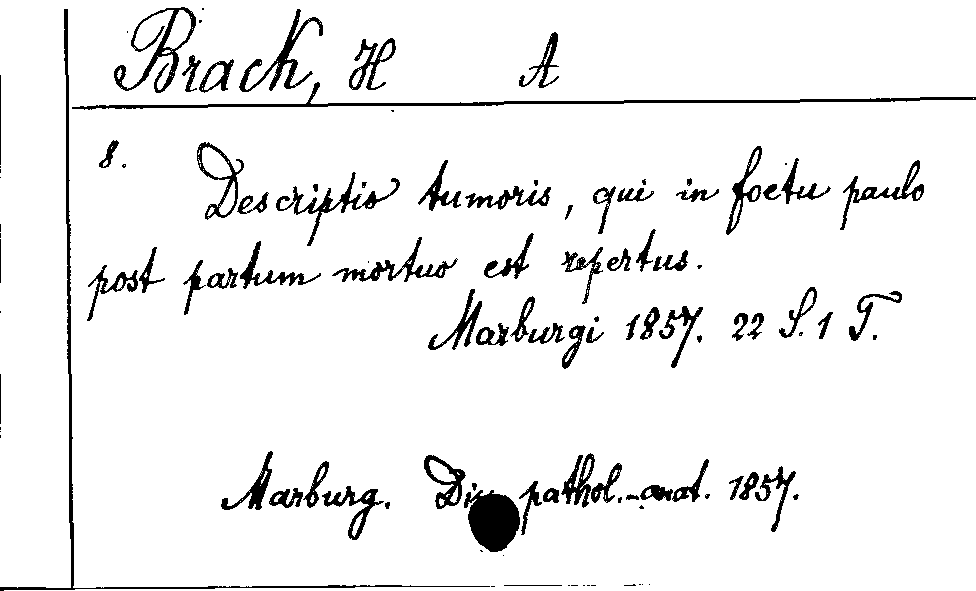 Brack, H A
8. Descriptio tumoris, qui in foetu paulo
post partum mortuo est repertus.
Marburgi 1857. 22 S. 1 T.
Marburg. pathol.-anat. 1857.